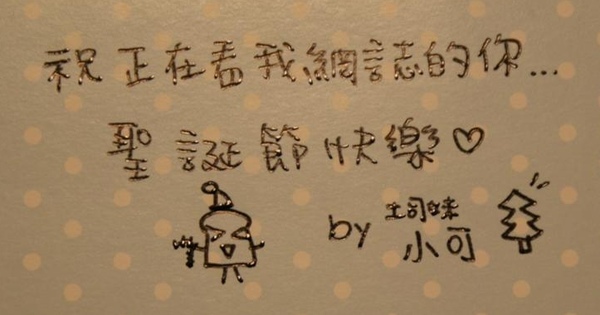 祝正在看我網誌的你...
聖誕節快樂♡
by 土司妹
小可